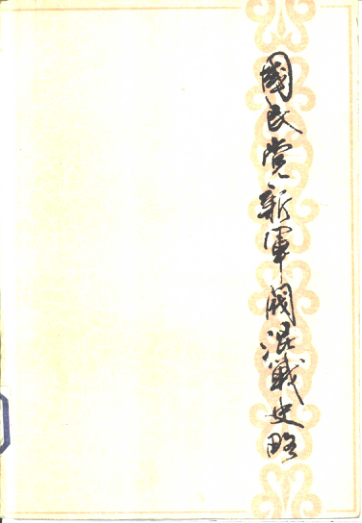 國民党新軍閥混戰史略